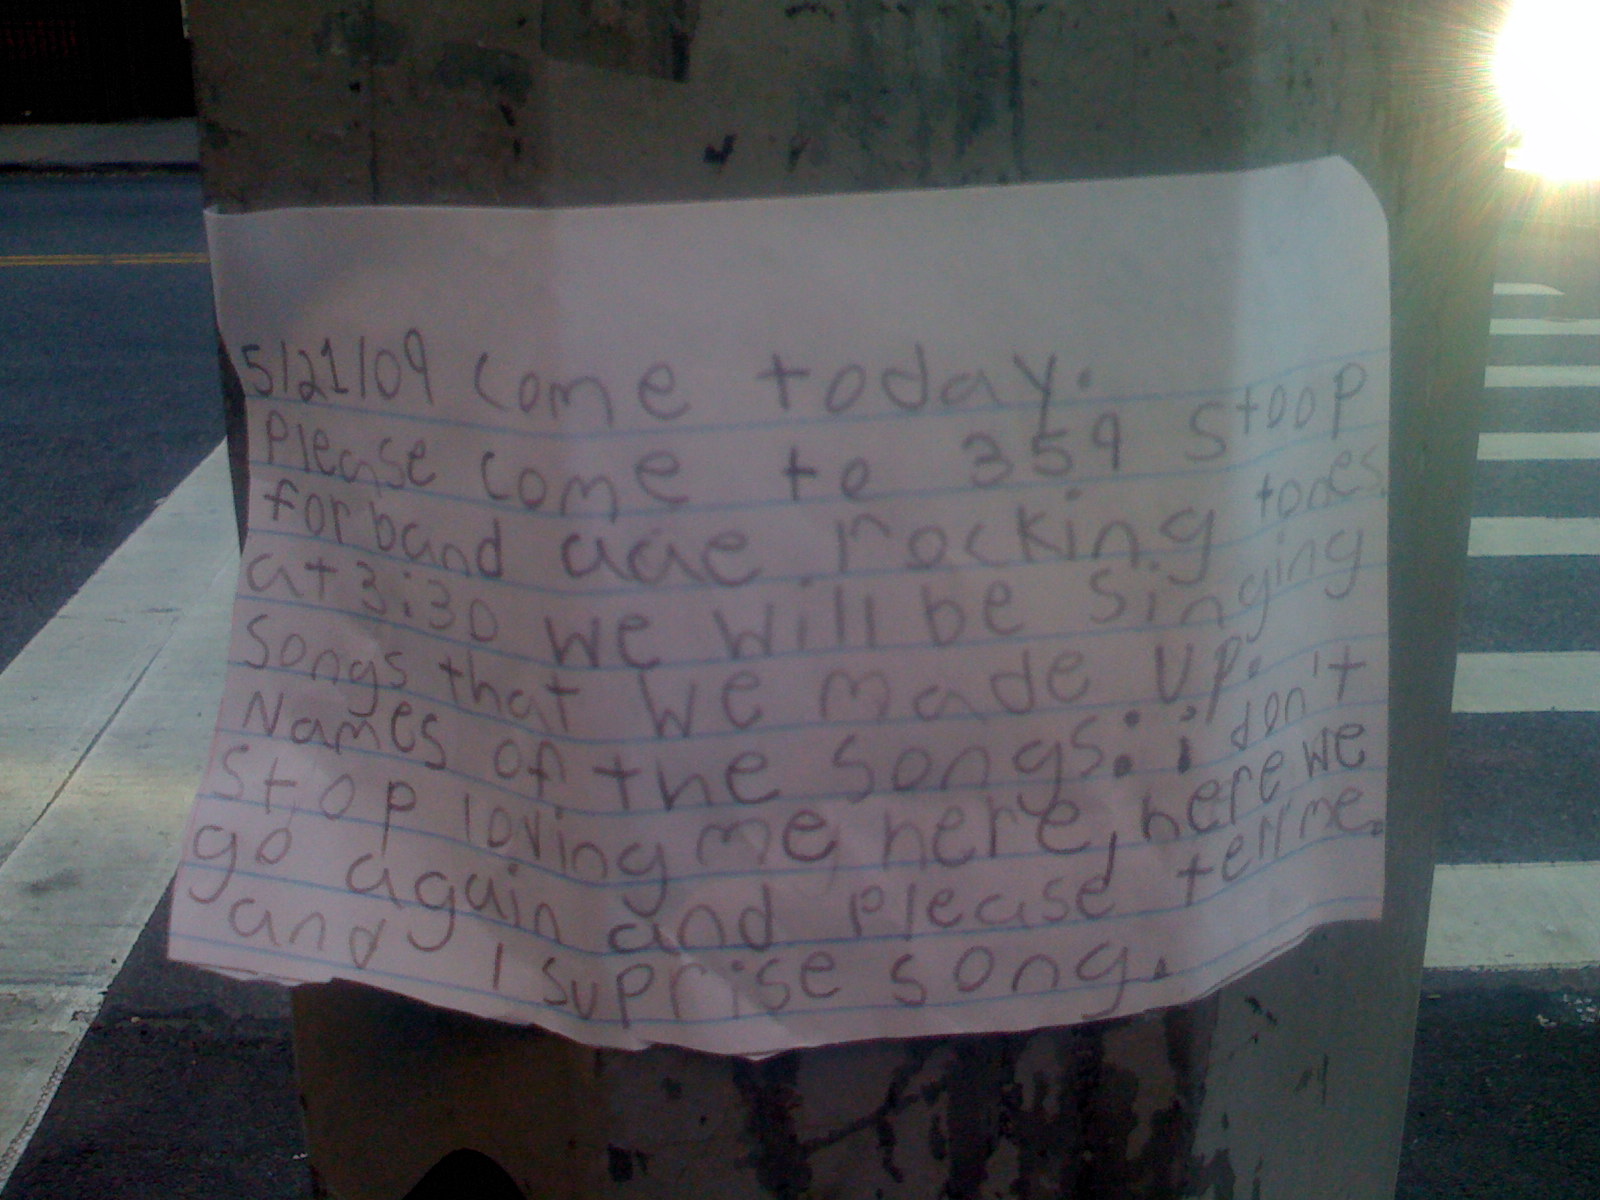 5/21/09 Come today.
Please come to 359 Stoop
for band acie rocking tones.
at 3:30 we will be singing
Songs that we made up.
Names of the songs: i don't
Stop loving me here, here we
go again and please tell me.
and 1 suprise song.